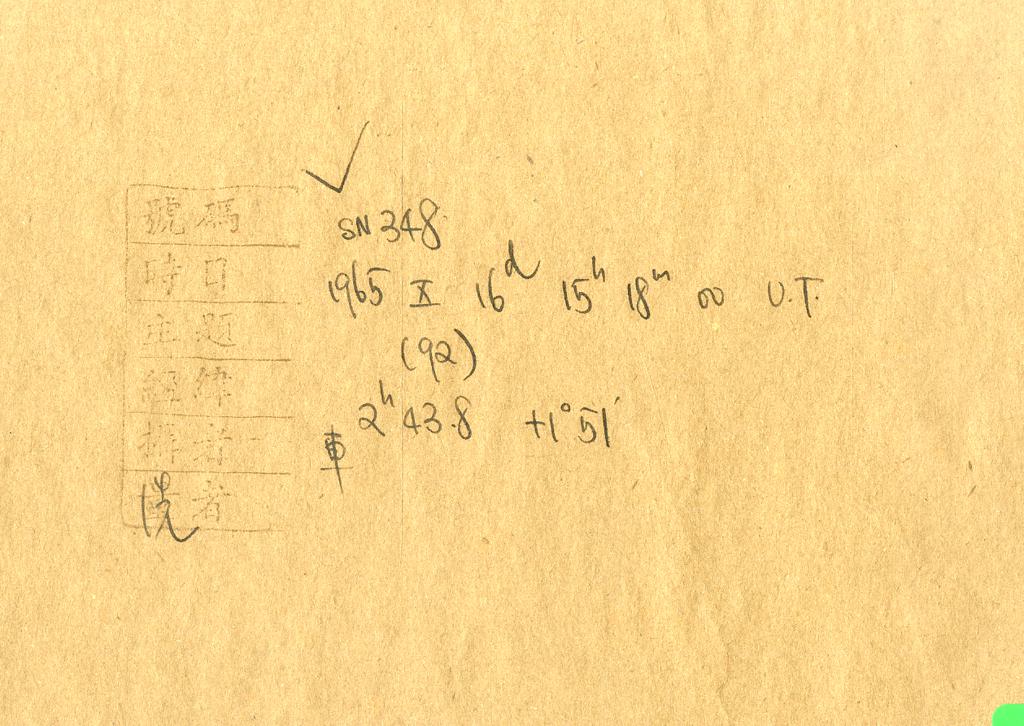 號碼 SN 348
時日 1965 X 16ᵈ 15ʰ 18ᵐ 00 U.T.
主題 (92)
經緯 2ʰ 43.8 +1°51′
攝者 車
洗者